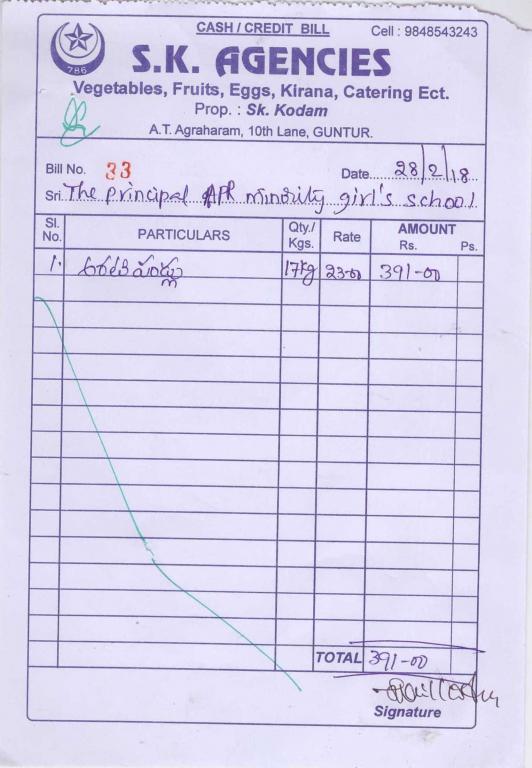 CASH / CREDIT BILL
Cell : 9848543243
786
S.K. AGENCIES
Vegetables, Fruits, Eggs, Kirana, Catering Ect.
Prop. : Sk. Kodam
A.T. Agraharam, 10th Lane, GUNTUR.
Bill No. 33 Date 28/2/18
Sri The principal APR minority girl's school
Sl. No. PARTICULARS Qty./ Kgs. Rate AMOUNT Rs. Ps.
1. అరటి పండ్లు 17kg 23-00 391-00
TOTAL 391-00
Signature